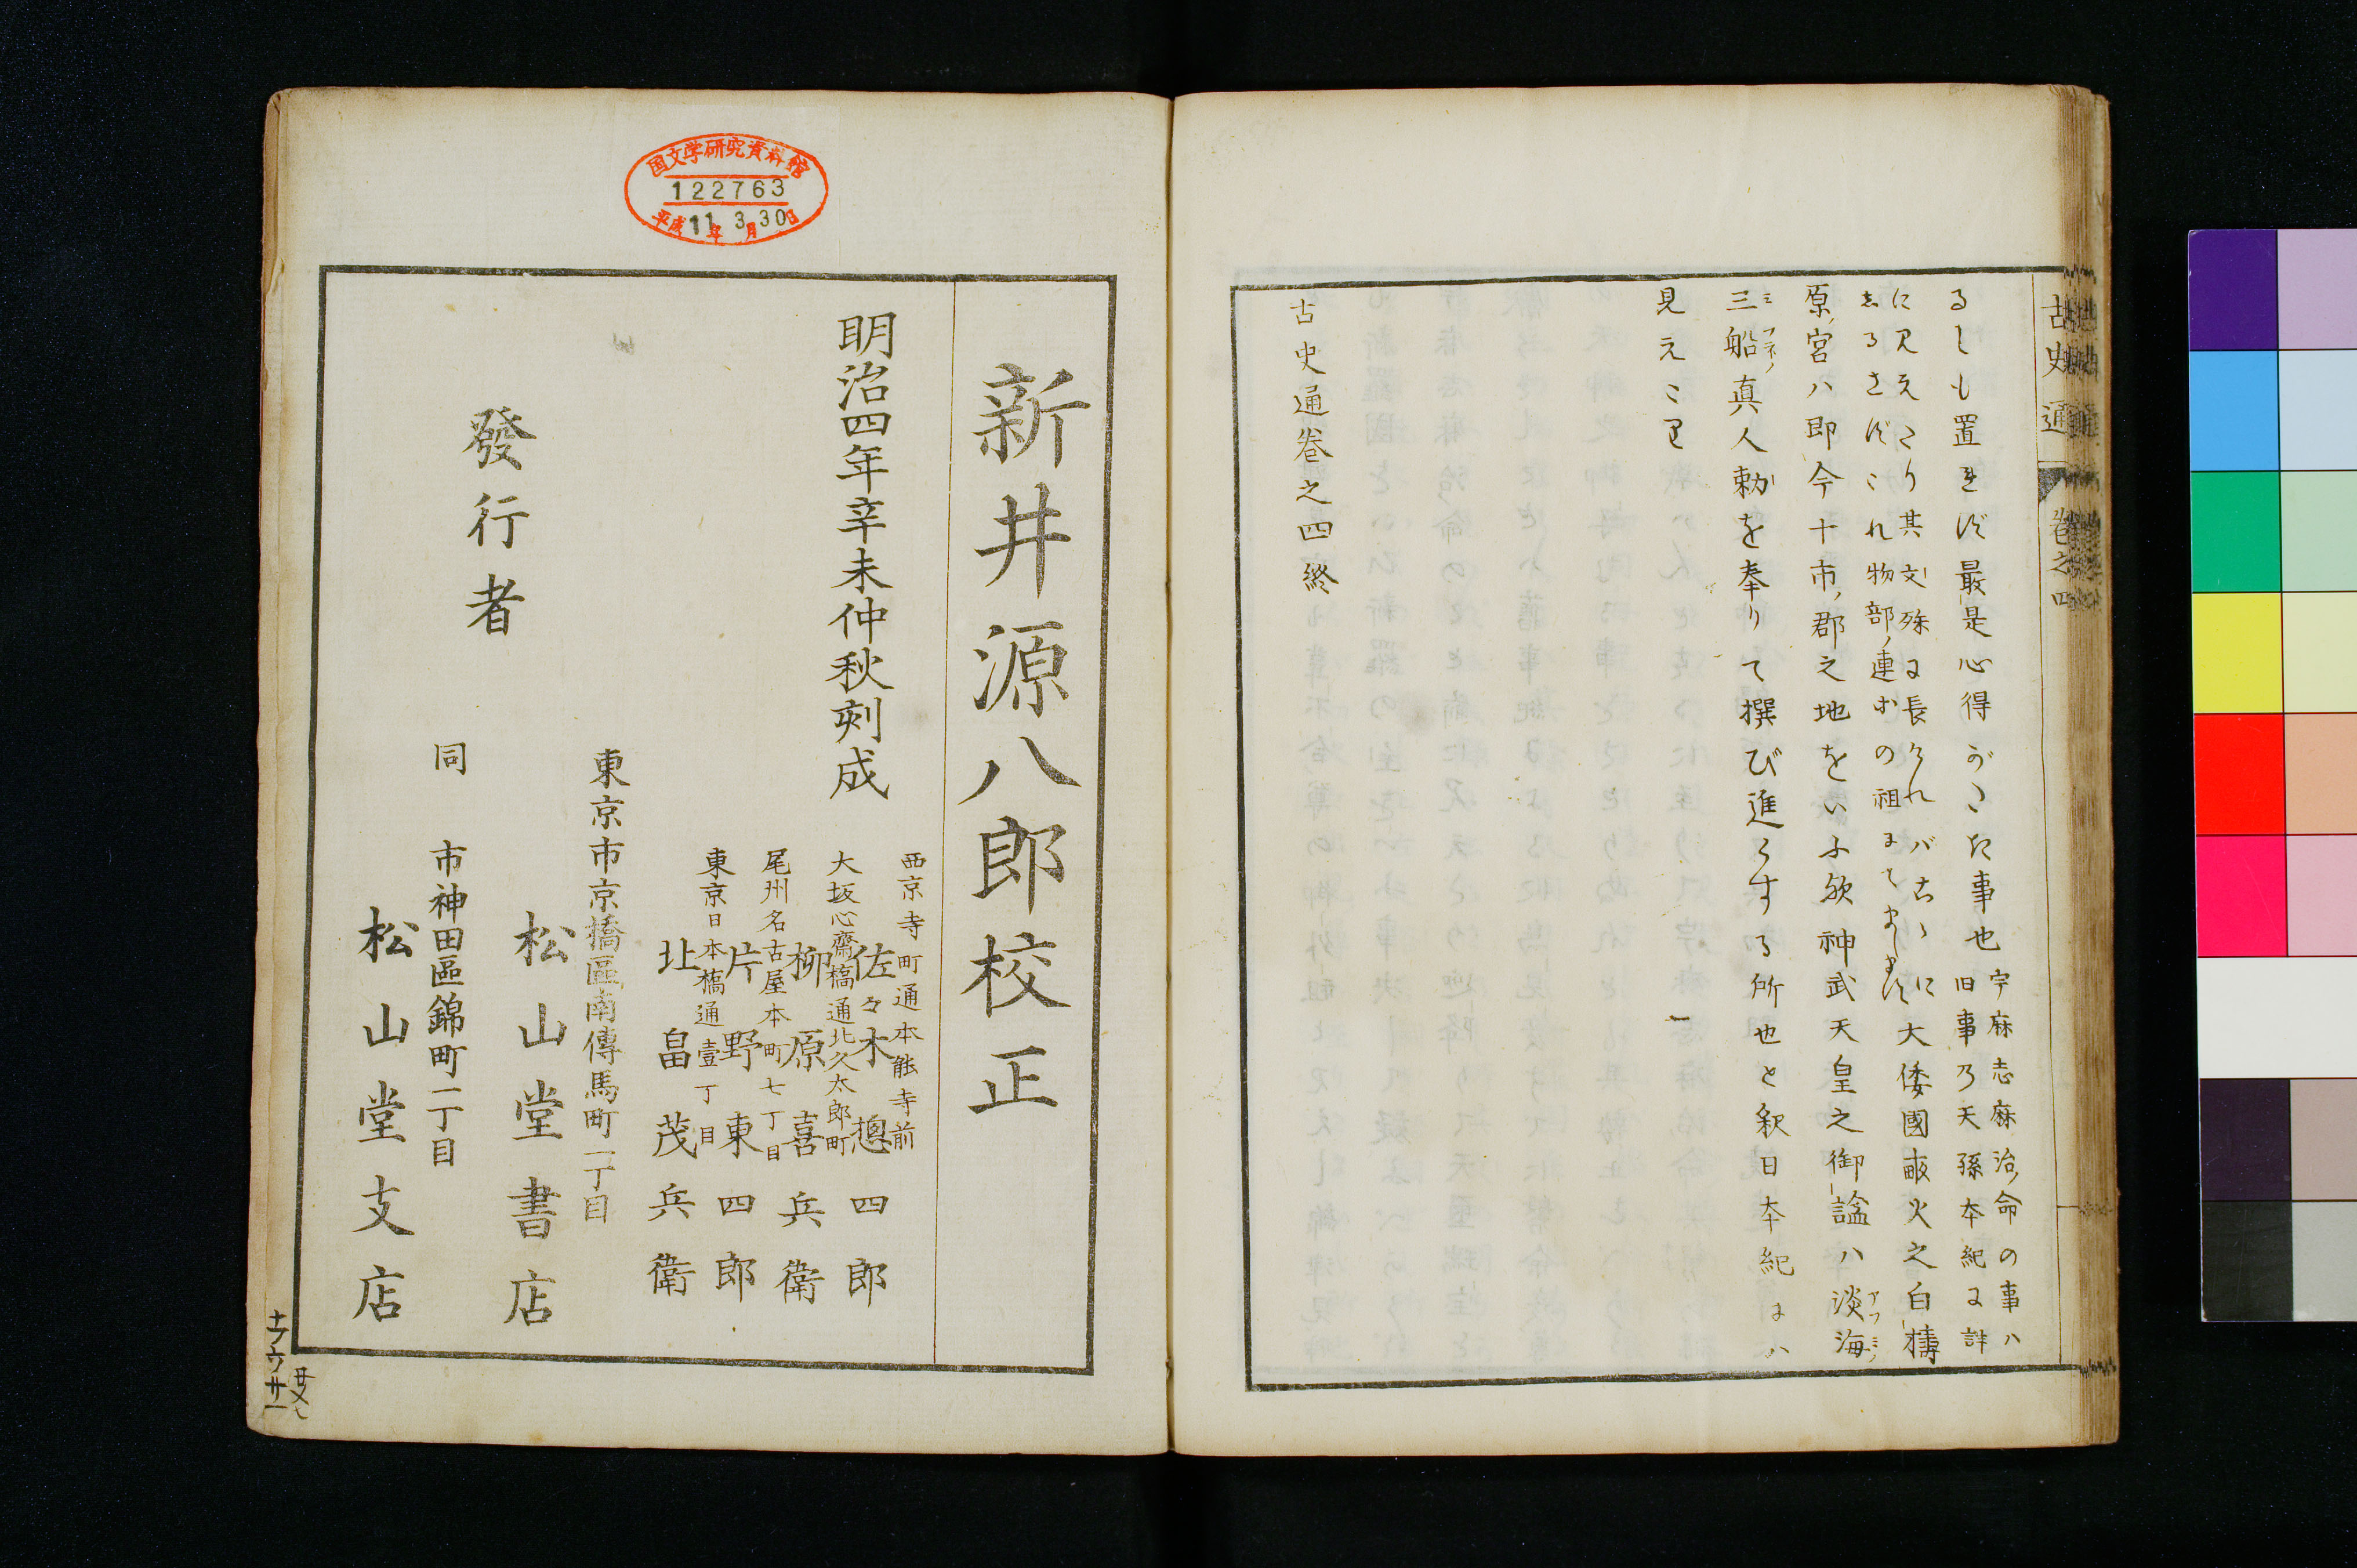 古史通
巻之四
るしも置れず最是心得がたき事也
宇麻志麻治命の事ハ
旧事乃天孫本紀に詳
に見えたり其文殊に長けれバこゝに
しるさずこれ物部ノ連
の祖
大倭國畝火之白檮
原ノ宮ハ即今十市ノ郡之地をいふ歟神武天皇之御諡ハ淡海
アフミノ
三船真人勅を奉りて撰び進らする所也と釈日本紀にハ
ミフネノ
見えたり
古史通巻之四終
国文学研究資料館
122763
平成11年3月30日
新井源八郎校正
明治四年辛未仲秋刻成
西京寺町通本能寺前
佐々木惣四郎
大坂心齋橋通北久太郎町
柳原喜兵衛
尾州名古屋本町七丁目
片野東四郎
東京日本橋通壹丁目
北畠茂兵衛
發行者
東京市京橋區南傳馬町一丁目
松山堂書店
同 市神田區錦町一丁目
松山堂支店